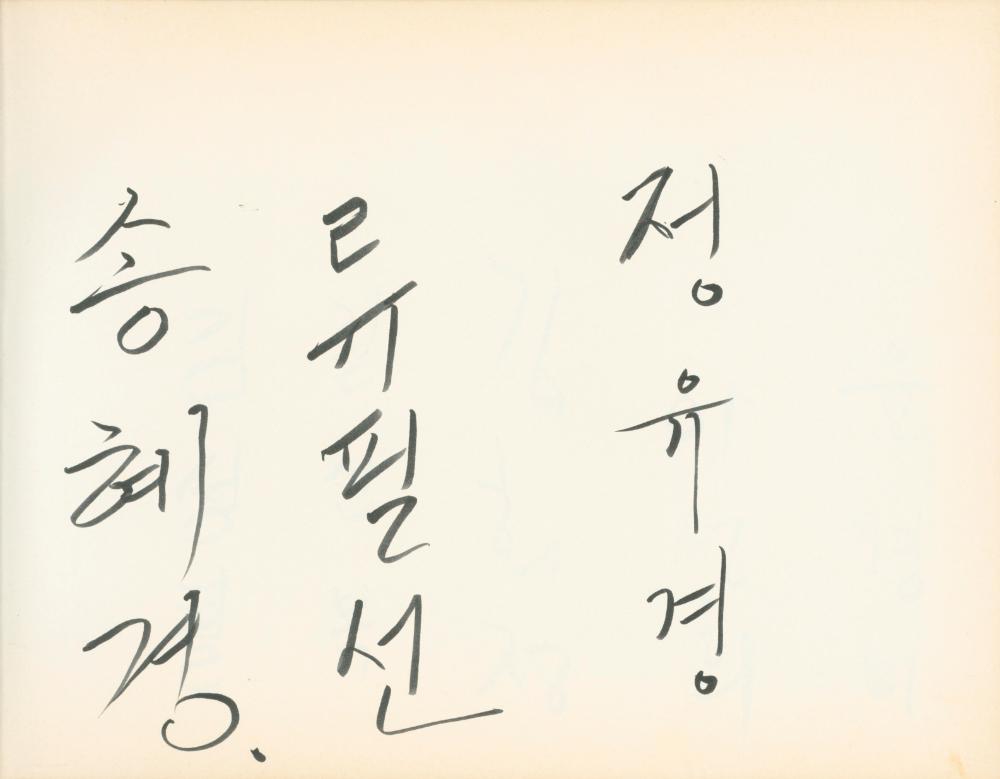 정유경
류필선
송혜경.